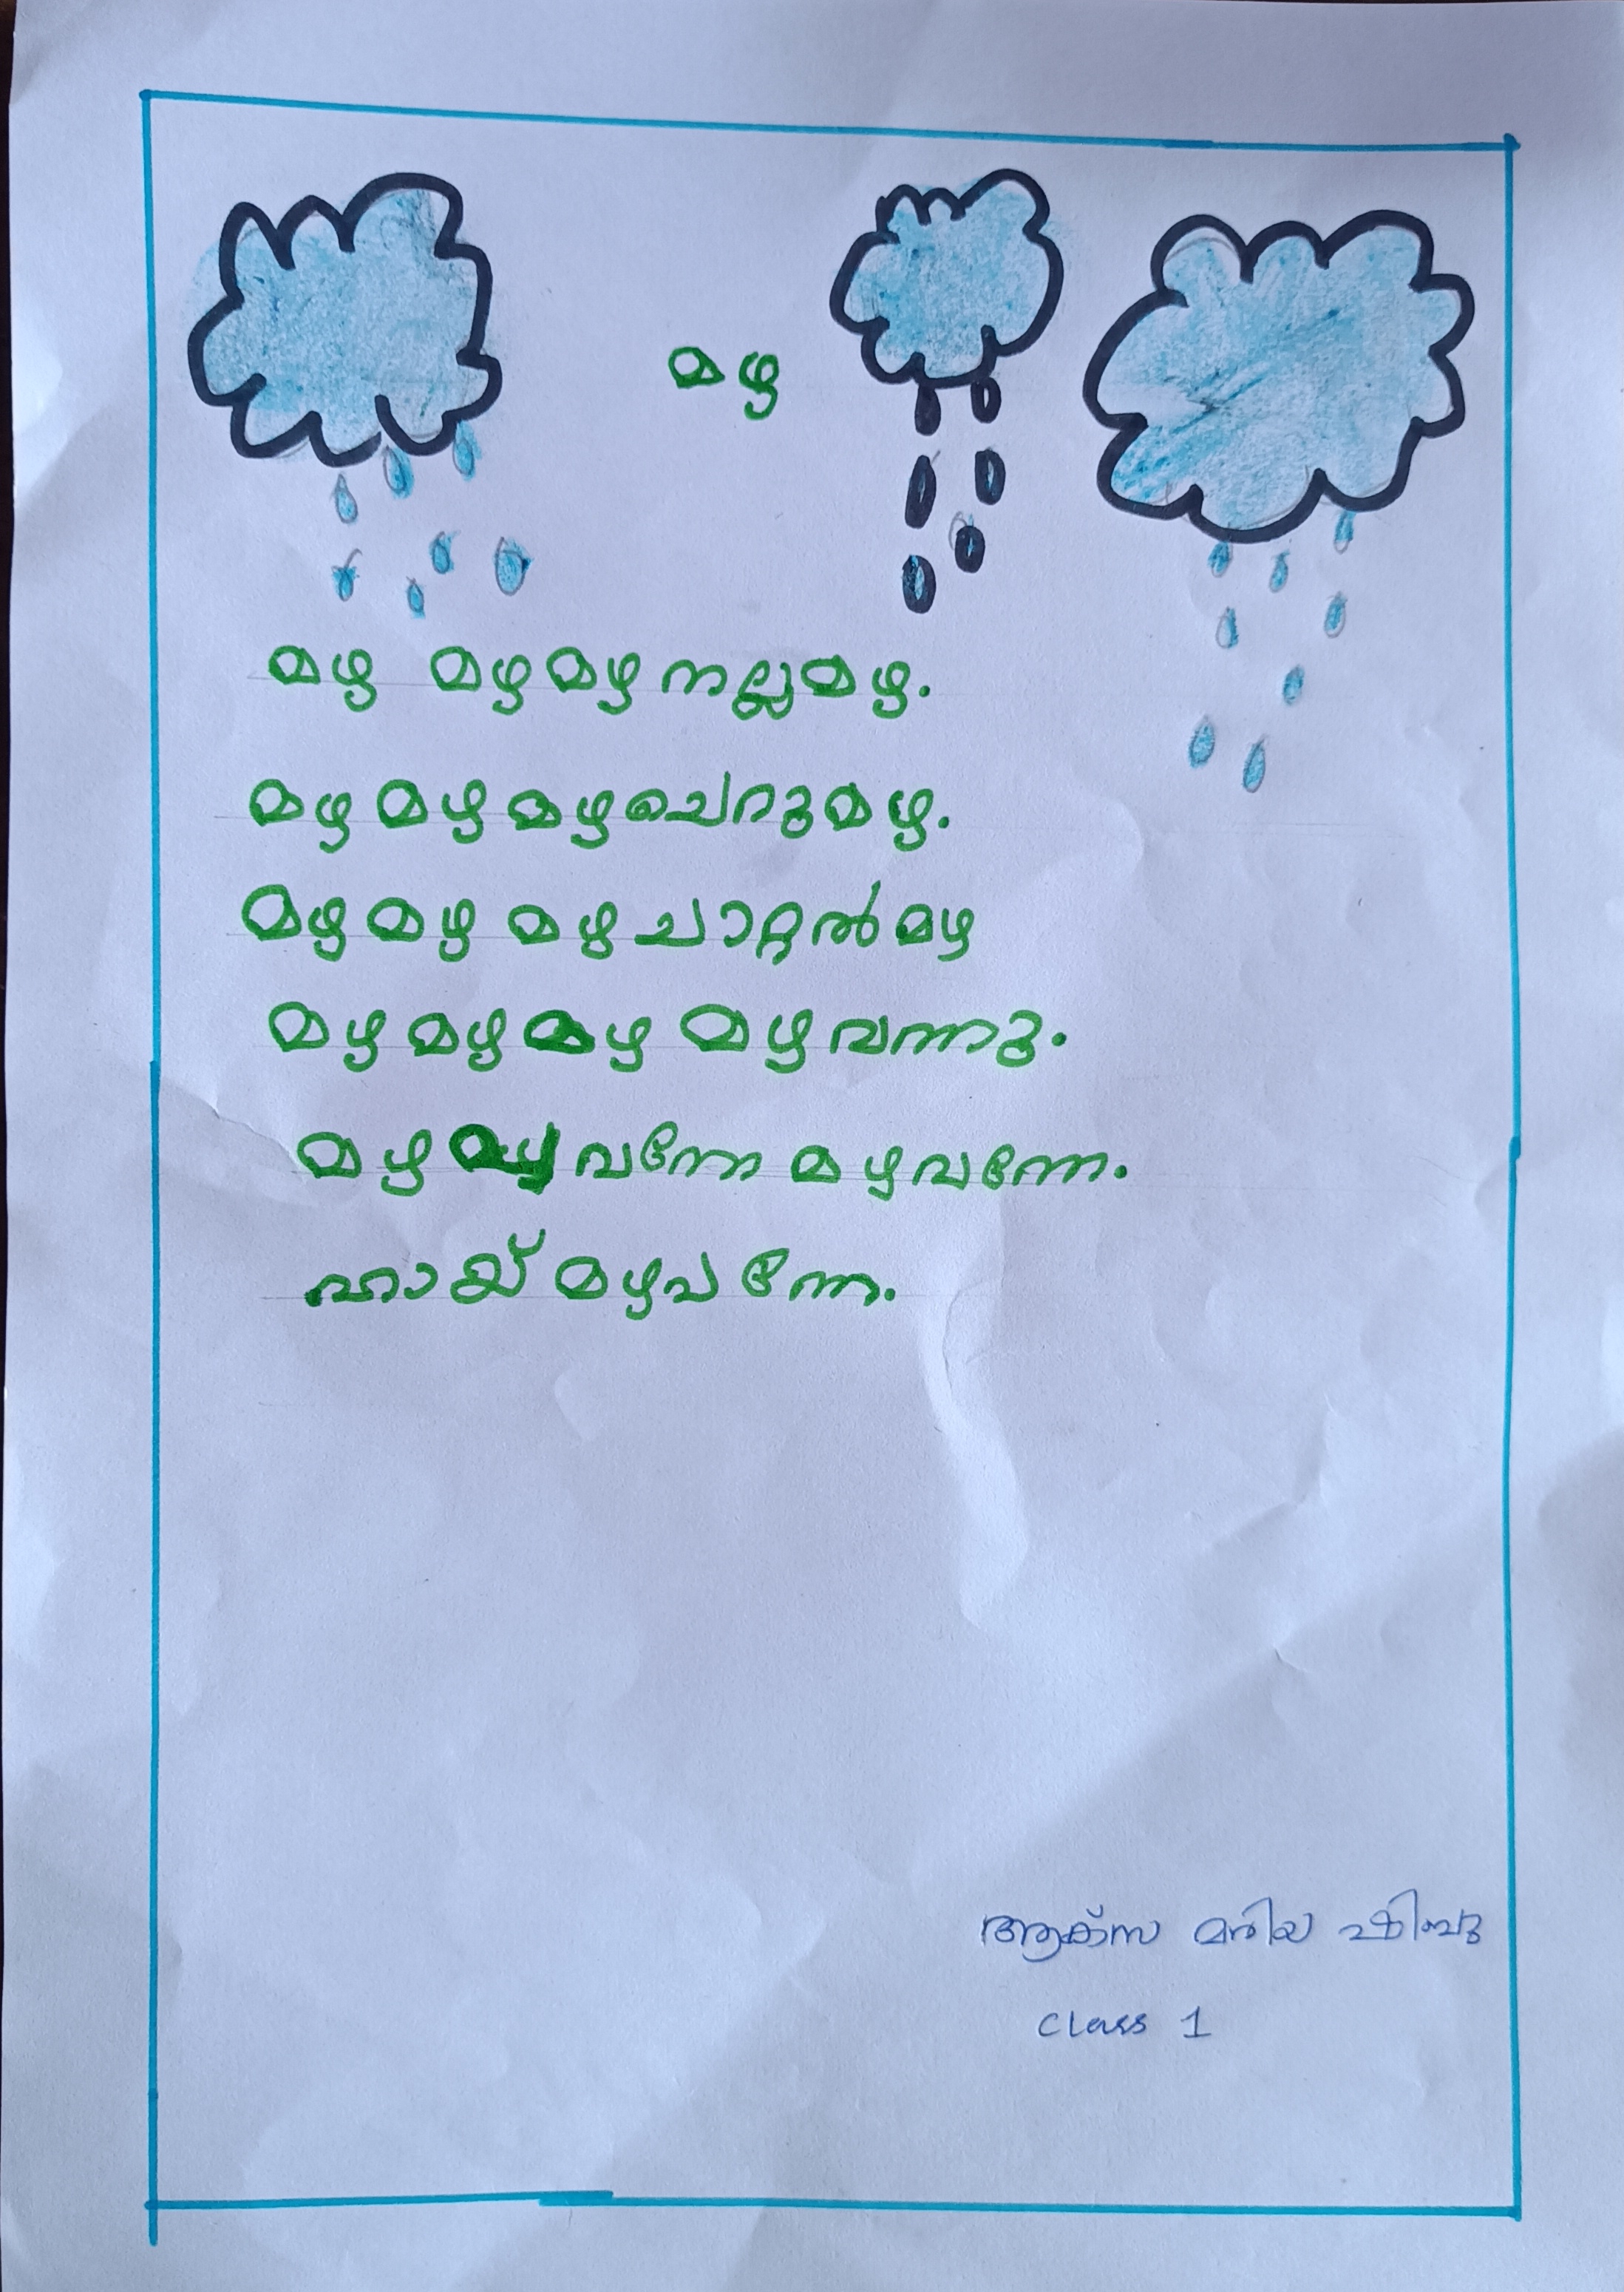 മഴ
മഴ മഴ മഴ നല്ലമഴ.
മഴ മഴ മഴ ചെറുമഴ.
മഴ മഴ മഴ ചാറ്റൽ മഴ
മഴ മഴ മഴ മഴ വന്നു.
മഴ മഴ വന്നേ മഴ വന്നേ.
ഹായ് മഴ വന്നേ.
ആക്സ മരിയ ഷിബു
class 1